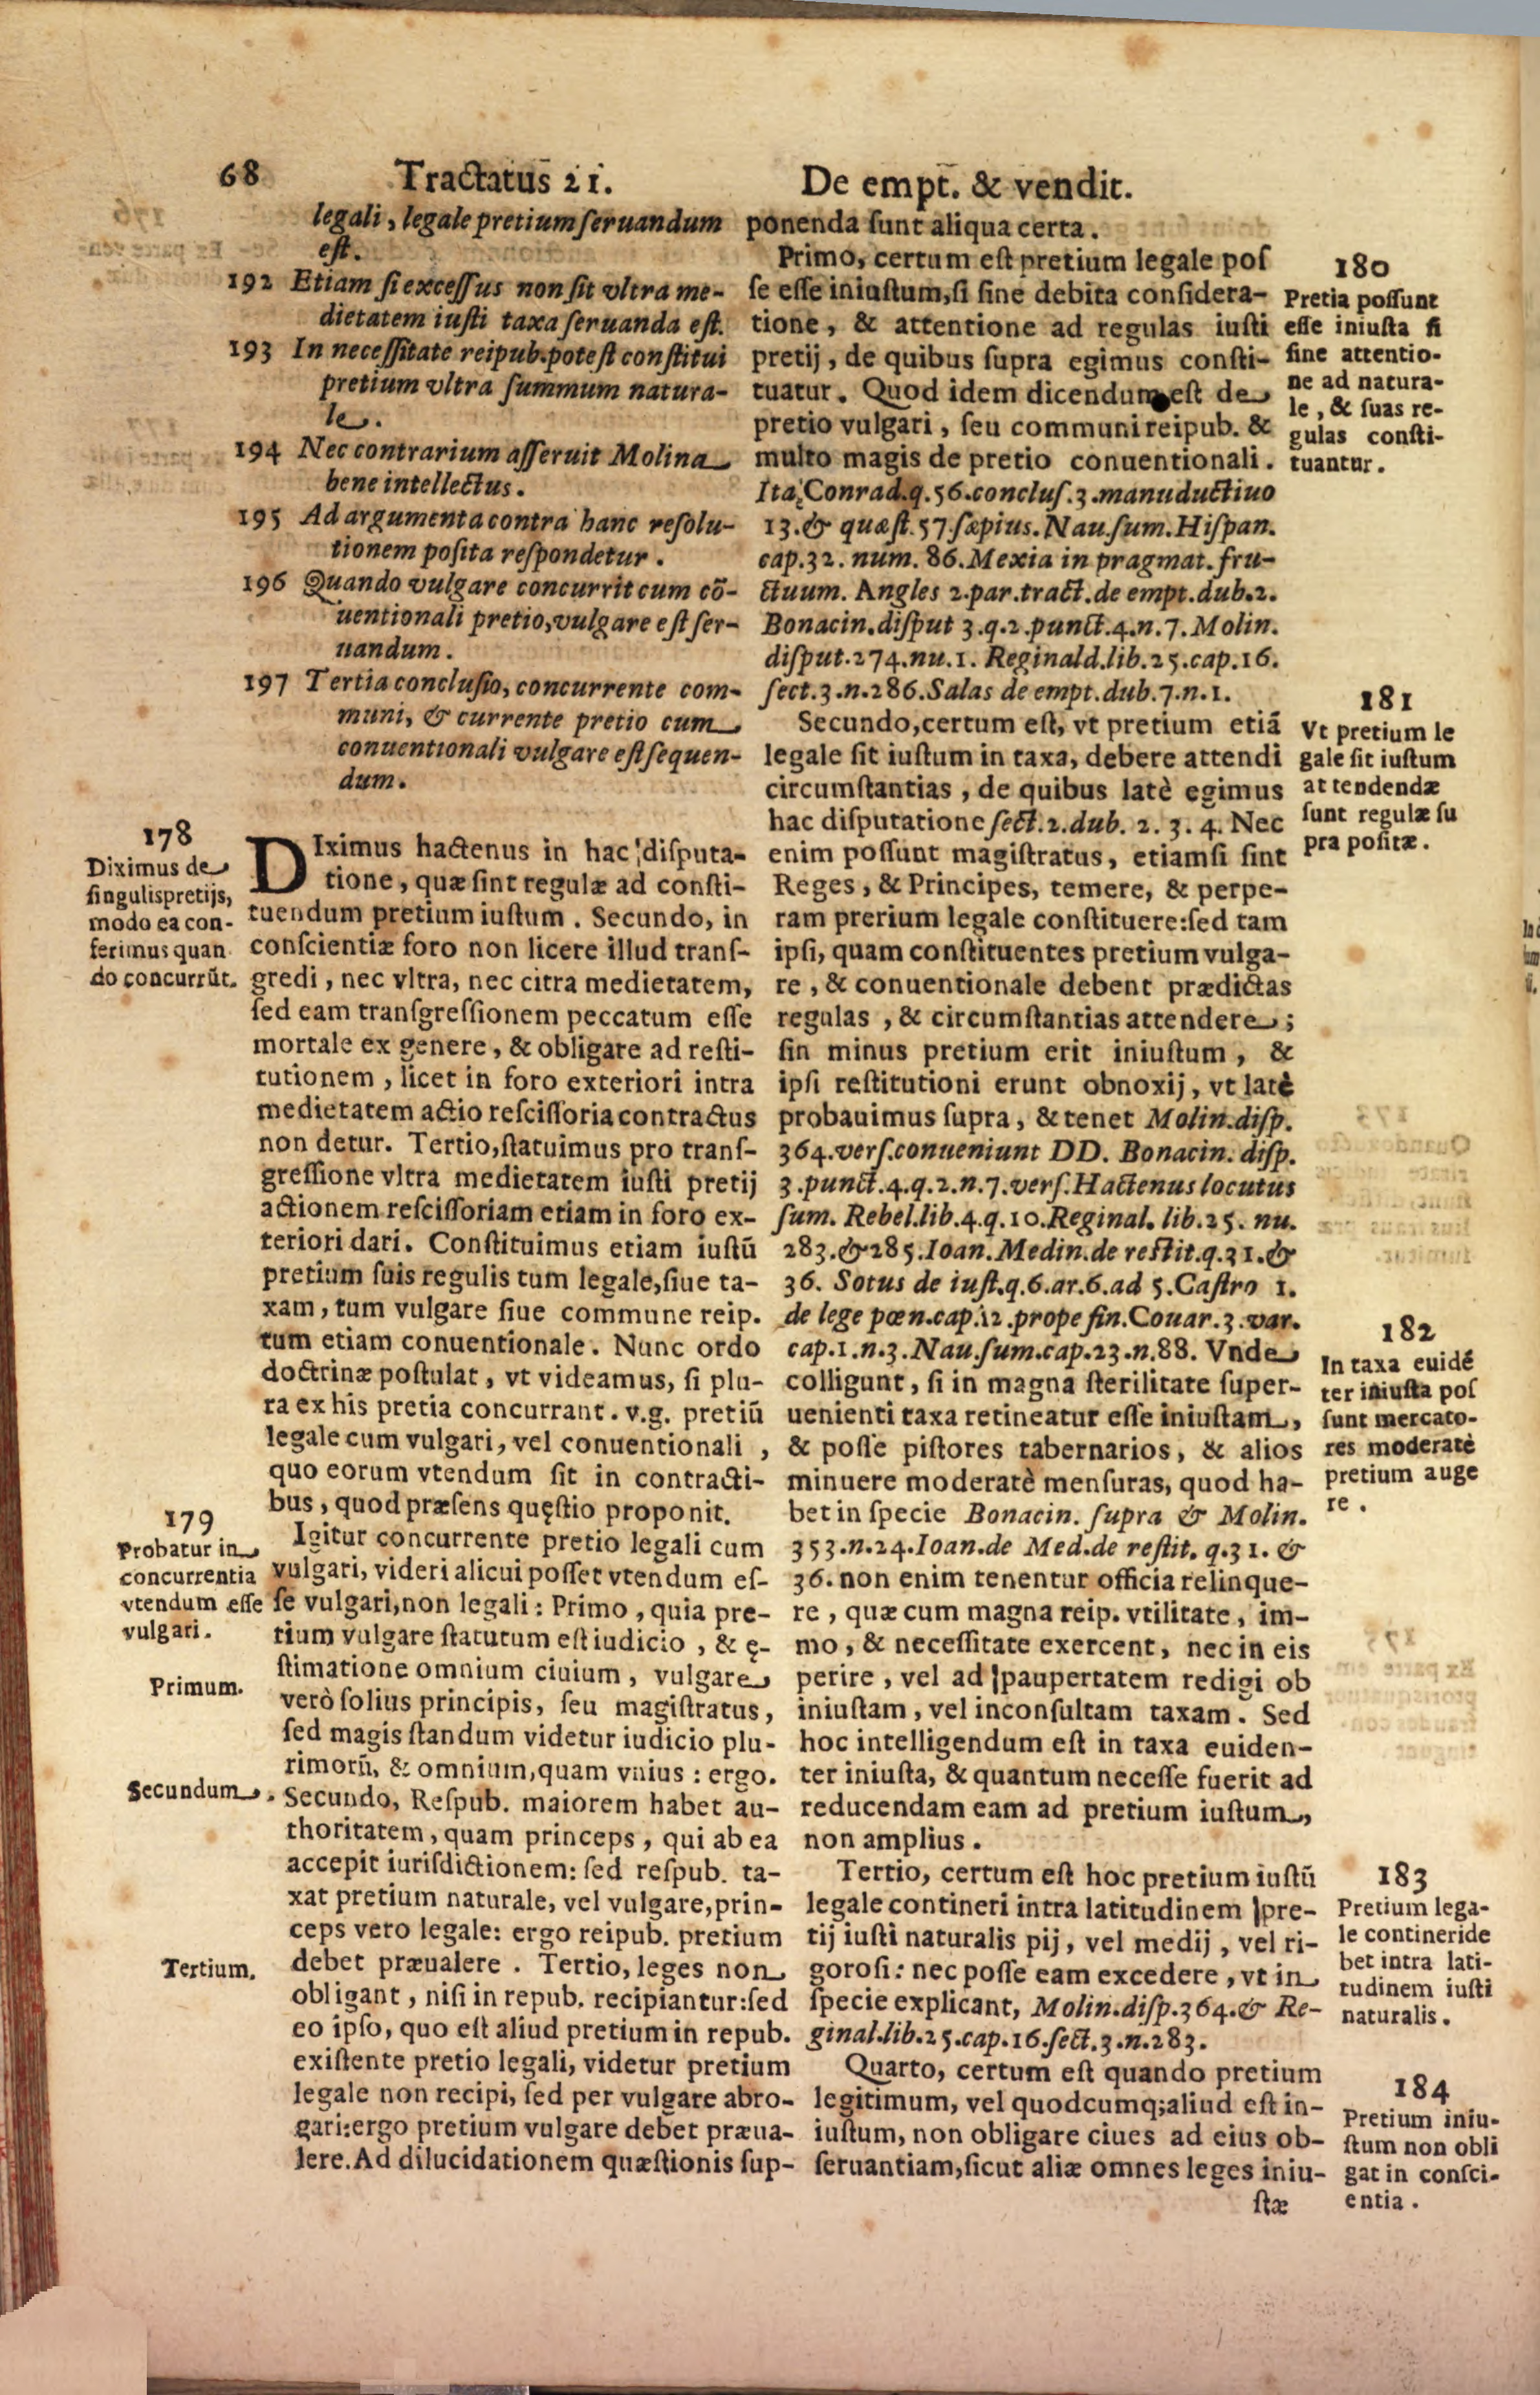 68 Tractatus 21. De empt. & vendit.
legali, legale pretium ſeruandum
eſt.
192 Etiam ſi exceſſus non ſit vltra me-
dietatem iuſti taxa ſeruanda eſt.
193 In neceſſitate reipub. poteſt conſtitui
pretium vltra ſummum natura-
le.
194 Nec contrarium aſſeruit Molina
bene intellectus.
195 Ad argumenta contra hanc reſolu-
tionem poſita reſpondetur.
196 Quando vulgare concurrit cum cõ-
uentionali pretio, vulgare eſt ſer-
uandum.
197 Tertia concluſio, concurrente com-
muni, & currente pretio cum
conuentionali vulgare eſt ſequen-
dum.
178
Diximus de
ſingulis pretijs,
modo ea con-
ferimus quan
do concurrũt.
DIximus hactenus in hac diſputa-
tione, quæ ſint regulæ ad conſti-
tuendum pretium iuſtum. Secundo, in
conſcientiæ foro non licere illud tranſ-
gredi, nec vltra, nec citra medietatem,
ſed eam tranſgreſſionem peccatum eſſe
mortale ex genere, & obligare ad reſti-
tutionem, licet in foro exteriori intra
medietatem actio reſciſſoria contractus
non detur. Tertio, ſtatuimus pro tranſ-
greſſione vltra medietatem iuſti pretij
actionem reſciſſoriam etiam in foro ex-
teriori dari. Conſtituimus etiam iuſtũ
pretium ſuis regulis tum legale, ſiue ta-
xam, tum vulgare ſiue commune reip.
tum etiam conuentionale. Nunc ordo
doctrinæ poſtulat, vt videamus, ſi plu-
ra ex his pretia concurrant. v.g. pretiũ
legale cum vulgari, vel conuentionali,
quo eorum vtendum ſit in contracti-
bus, quod præſens quęſtio proponit.
179
Probatur in
concurrentia
vtendum eſſe
vulgari.
Igitur concurrente pretio legali cum
vulgari, videri alicui poſſet vtendum eſ-
ſe vulgari, non legali: Primo, quia pre-
tium vulgare ſtatutum eſt iudicio, & ę-
ſtimatione omnium ciuium, vulgare
Primum.
verò ſolius principis, ſeu magiſtratus,
ſed magis ſtandum videtur iudicio plu-
rimorũ, & omnium, quam vnius: ergo.
Secundum.
Secundo, Reſpub. maiorem habet au-
thoritatem, quam princeps, qui ab ea
accepit iuriſdictionem: ſed reſpub. ta-
xat pretium naturale, vel vulgare, prin-
ceps vero legale: ergo reipub. pretium
debet præualere. Tertio, leges non
Tertium.
obligant, niſi in repub. recipiantur: ſed
eo ipſo, quo eſt aliud pretium in repub.
exiſtente pretio legali, videtur pretium
legale non recipi, ſed per vulgare abro-
gari: ergo pretium vulgare debet præua-
lere. Ad dilucidationem quæſtionis ſup-
ponenda ſunt aliqua certa.
Primo, certum eſt pretium legale poſ
ſe eſſe iniuſtum, ſi ſine debita conſidera-
tione, & attentione ad regulas iuſti
pretij, de quibus ſupra egimus conſti-
tuatur. Quod idem dicendum eſt de
pretio vulgari, ſeu communi reipub. &
multo magis de pretio conuentionali.
Ita Conrad. q. 56. concluſ. 3. manuductiuo
13. & quæſt. 57. ſæpius. Nau. ſum. Hiſpan.
cap. 32. num. 86. Mexia in pragmat. fru-
ctuum. Angles 2. par. tract. de empt. dub. 2.
Bonacin. diſput 3. q. 2. punct. 4. n. 7. Molin.
diſput. 274. nu. 1. Reginald. lib. 25. cap. 16.
ſect. 3. n. 286. Salas de empt. dub. 7. n. 1.
180
Pretia poſſunt
eſſe iniuſta ſi
ſine attentio-
ne ad natura-
le, & ſuas re-
gulas conſti-
tuantur.
Secundo, certum eſt, vt pretium etiã
legale ſit iuſtum in taxa, debere attendi
circumſtantias, de quibus latè egimus
hac diſputatione ſect. 2. dub. 2. 3. 4. Nec
enim poſſunt magiſtratus, etiamſi ſint
Reges, & Principes, temere, & perpe-
ram prerium legale conſtituere: ſed tam
ipſi, quam conſtituentes pretium vulga-
re, & conuentionale debent prædictas
regulas, & circumſtantias attendere;
ſin minus pretium erit iniuſtum, &
ipſi reſtitutioni erunt obnoxij, vt latè
probauimus ſupra, & tenet Molin. diſp.
364. verſ. conueniunt DD. Bonacin. diſp.
3. punct. 4. q. 2. n. 7. verſ. Hactenus locutus
ſum. Rebel. lib. 4. q. 10. Reginal. lib. 25. nu.
283. & 285. Ioan. Medin. de reſtit. q. 31. &
36. Sotus de iuſt. q. 6. ar. 6. ad 5. Caſtro 1.
de lege pœn. cap. 12. prope fin. Couar. 3. var.
cap. 1. n. 3. Nau. ſum. cap. 23. n. 88. Vnde
colligunt, ſi in magna ſterilitate ſuper-
uenienti taxa retineatur eſſe iniuſtam,
& poſſe piſtores tabernarios, & alios
minuere moderatè menſuras, quod ha-
bet in ſpecie Bonacin. ſupra & Molin.
353. n. 24. Ioan. de Med. de reſtit. q. 31. &
36. non enim tenentur officia relinque-
re, quæ cum magna reip. vtilitate, im-
mo, & neceſſitate exercent, nec in eis
perire, vel ad paupertatem redigi ob
iniuſtam, vel inconſultam taxam. Sed
hoc intelligendum eſt in taxa euiden-
ter iniuſta, & quantum neceſſe fuerit ad
reducendam eam ad pretium iuſtum,
non amplius.
181
Vt pretium le
gale ſit iuſtum
attendendæ
ſunt regulæ ſu
pra poſitæ.
182
In taxa euidẽ
ter iniuſta poſ
ſunt mercato-
res moderatè
pretium auge
re.
Tertio, certum eſt hoc pretium iuſtũ
legale contineri intra latitudinem pre-
tij iuſti naturalis pij, vel medij, vel ri-
goroſi: nec poſſe eam excedere, vt in
ſpecie explicant, Molin. diſp. 364. & Re-
ginal. lib. 25. cap. 16. ſect. 3. n. 283.
183
Pretium lega-
le contineri de
bet intra lati-
tudinem iuſti
naturalis.
Quarto, certum eſt quando pretium
legitimum, vel quodcumq; aliud eſt in-
iuſtum, non obligare ciues ad eius ob-
ſeruantiam, ſicut aliæ omnes leges iniu-
ſtæ
184
Pretium iniu-
ſtum non obli
gat in conſci-
entia.